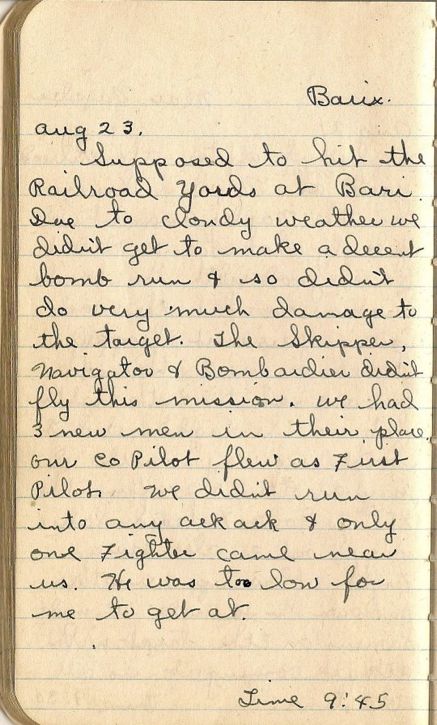 Barix.
Aug 23.
Supposed to hit the
Railroad Yards at Bari
Due to cloudy weather we
didn't get to make a decent
bomb run & so didn't
do very much damage to
the target. The Skipper,
Navigator & Bombardier didn't
fly this mission. We had
3 new men in their place
our Co Pilot flew as First
Pilot. We didn't run
into any ack ack & only
one Fighter came near
us. He was too low for
me to get at.
Time 9:45